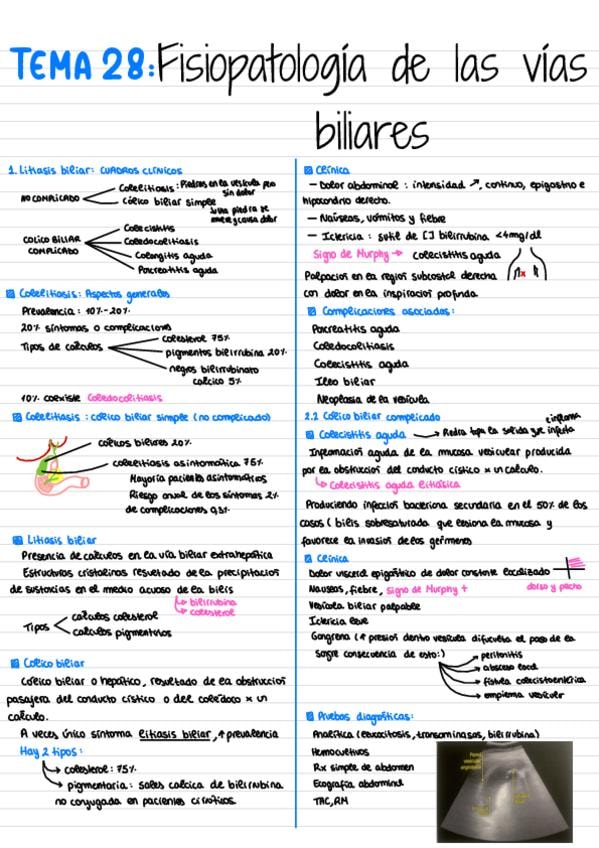 TEMA 28: Fisiopatología de las vías
biliares
1. Litiasis biliar: CUADROS CLÍNICOS
NO COMPLICADO
Colelitiasis: Piedras en la vesícula pero
sin dolor
cólico biliar simple
una piedra se
mueve y causa dolor
COLICO BILIAR
COMPLICADO
Colecistitis
Coledocolitiasis
Colangitis aguda
Pancreatitis aguda
Colelitiasis: Aspectos generales
Prevalencia: 10%-20%
20% síntomas o complicaciones
Tipos de cálculos
colesterol 75%
pigmentos bilirrubina 20%
negros bilirrubinato
cálcico 5%
10% coexiste Coledocolitiasis
Colelitiasis: cólico biliar simple (no complicado)
cólicos biliares 20%
colelitiasis asintomática 75%
Mayoría pacientes asintomáticos
Riesgo anual de los síntomas 2%
de complicaciones 0,3%
Litiasis biliar
Presencia de cálculos en la vía biliar extrahepática
Estructuras cristalinas resultado de la precipitación
de sustancias en el medio acuoso de la bilis
bilirrubina
colesterol
Tipos
cálculos colesterol
cálculos pigmentarios
Cólico biliar
Cólico biliar o hepático, resultado de la obstrucción
pasajera del conducto cístico o del colédoco x un
cálculo.
A veces único síntoma litiasis biliar, ↑ prevalencia
Hay 2 tipos:
colesterol: 75%
pigmentaria: sales cálcica de bilirrubina
no conjugada en pacientes cirróticos
Clínica
- Dolor abdominal: intensidad ↗, continuo, epigastrio e
hipocondrio derecho.
- Naúseas, vómitos y fiebre
- Ictericia: sutil de [] bilirrubina <4mg/dl
Signo de Murphy → colecistitis aguda
Palpación en la región subcostal derecha
con dolor en la inspiración profunda.
Complicaciones asociadas:
Pancreatitis aguda
Coledocolitiasis
Colecistitis aguda
Íleo biliar
Neoplasia de la vesícula
2.2 Cólico biliar complicado
Colecistitis aguda → Piedra tapa la salida y se infecta
e inflama
Inflamación aguda de la mucosa vesicular producida
por la obstrucción del conducto cístico x un cálculo.
Colecistitis aguda litiásica
Produciendo infección bacteriana secundaria en el 50% de los
casos (bilis sobresaturada que lesiona la mucosa y
favorece la invasión de los gérmenes
Clínica
Dolor visceral epigástrico de dolor constante localizado
Nauseas, fiebre, signo de Murphy +
dorso y pecho
Vesícula biliar palpable
Ictericia leve
Gangrena (↑ presión dentro vesícula dificulta el paso de la
sangre consecuencia de esto:)
peritonitis
absceso local
fístula colecistoentérica
empiema vesicular
Pruebas diagnósticas:
Analítica (leucocitosis, transaminasas, bilirrubina)
Hemocultivos
Rx simple de abdomen
Ecografía abdominal
TAC, RM